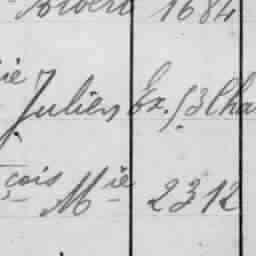 Albert 1684
ie Julien Ex. S. Cha
çois Mie 2312